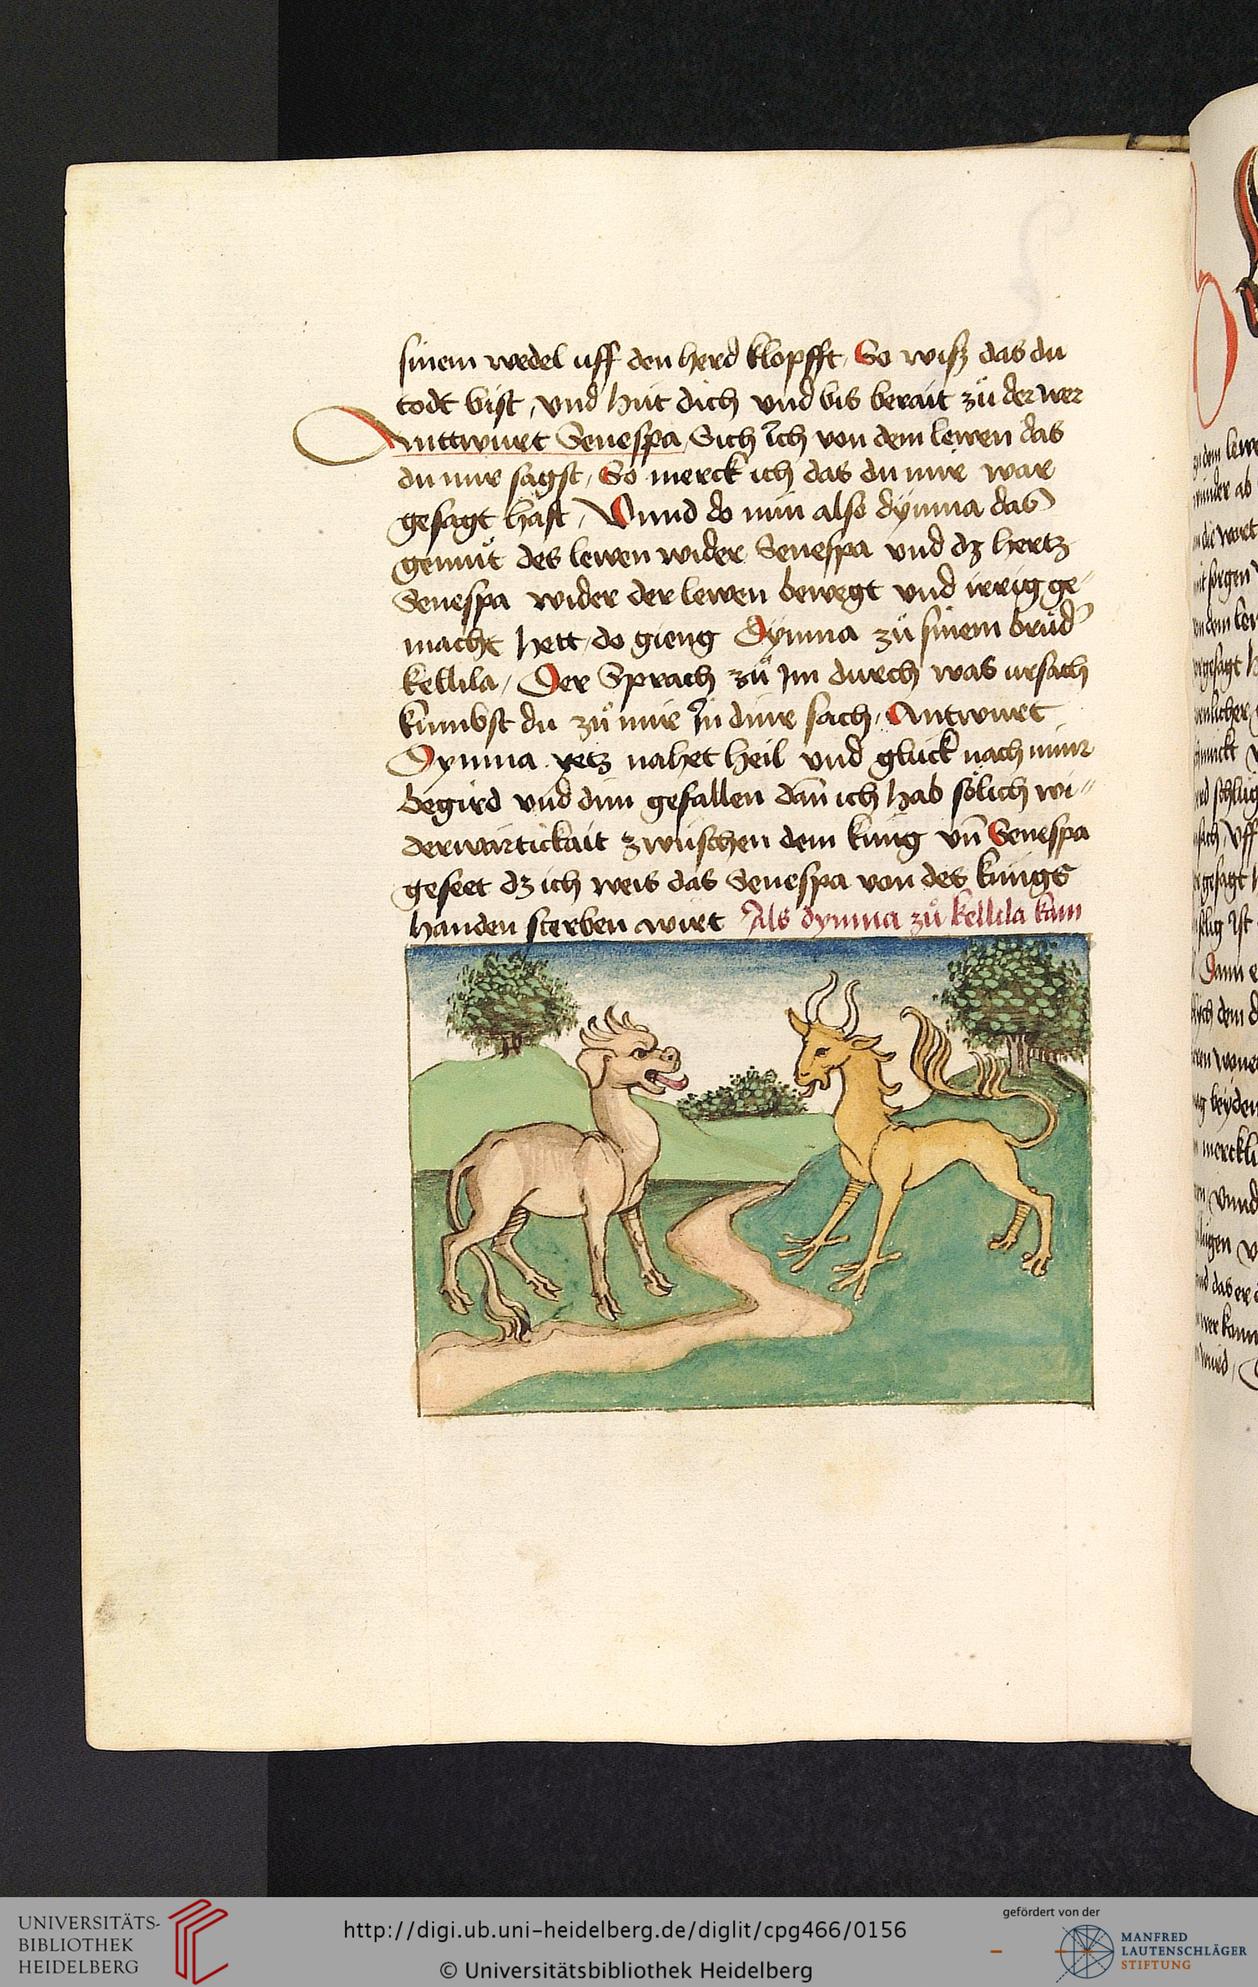 sinem wedel uff den herd klopfft, So wiss das du
todt bist, vnd hüt dich vnd bis berait zů der wer
Anttwurt Senespa, Sich Ich von dem lewen das
du mir sagst, So merck ich das du mir war
gesagt hast, Vnnd do nün also dÿmna das
gemüt des lewen wider Senespa vnd dz hertz
Senespa wider der lewen bewegt vnd irrig ge„
macht hett, do gieng Dymna zů sinem brůd
kellila, Der Sprach zů Im durch was ursach
kumbst du zů mir In diner sach, Antwurt
Dymna yetz nahet heil vnd glück nach minr
begird vnd dim gefallen dañ ich hab sölich wi„
derwärtickait zwüschen dem küng vñ Senespa
geseet dz ich weis das Senespa von des küngs
handen sterben wirt Als dymna zů kellila kam
UNIVERSITÄTS-
BIBLIOTHEK
HEIDELBERG
http://digi.ub.uni-heidelberg.de/diglit/cpg466/0156
© Universitätsbibliothek Heidelberg
gefördert von der
MANFRED
LAUTENSCHLÄGER
STIFTUNG